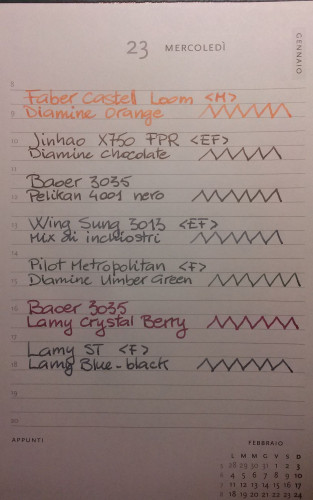 23 MERCOLEDÌ
GENNAIO
8
Faber Castel Loom <M>
9
Diamine Orange
10
Jinhao X750 FPR <EF>
11
Diamine Chocolate
Baoer 3035
12
Pelikan 4001 nero
13
Wing Sung 3013 <EF>
14
Mix di inchiostri
Pilot Metropolitan <F>
15
Diamine Umber Green
16
Baoer 3035
Lamy Crystal Berry
17
Lamy ST <F>
18
Lamy Blue-black
19
20
APPUNTI
FEBBRAIO
L M M G V S D
28 29 30 31 1 2 3
4 5 6 7 8 9 10
11 12 13 14 15 16 17
18 19 20 21 22 23 24